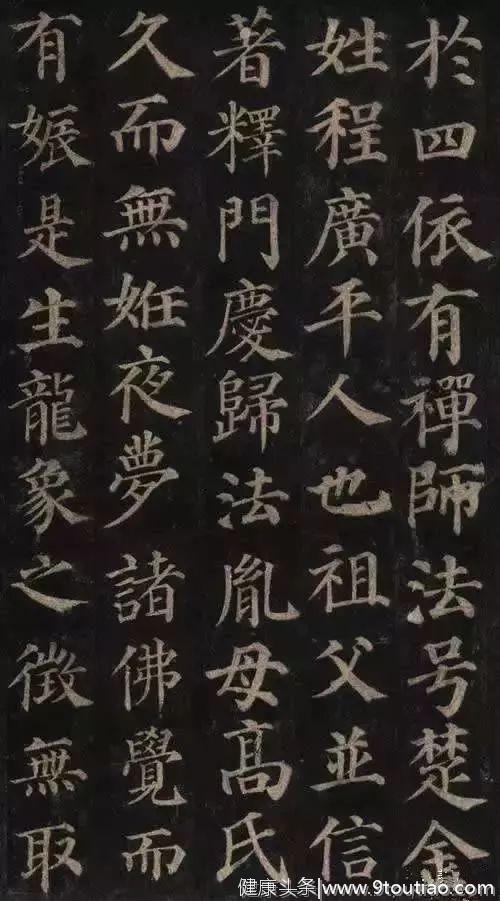 於四依有禪師法号楚金
姓程廣平人也祖父並信
著釋門慶歸法胤母髙氏
久而無姙夜夢諸佛覺而
有娠是生龍象之徵無取
健康头条|www.9toutiao.com